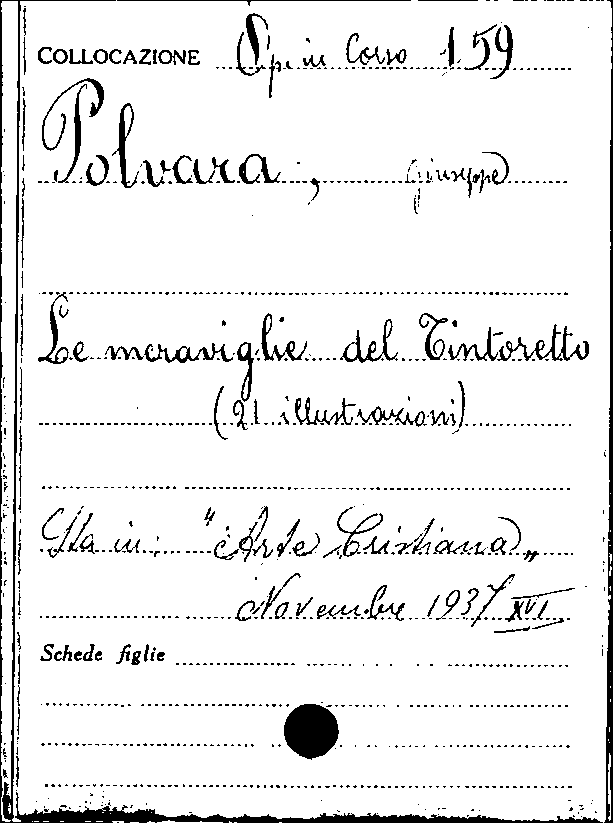 COLLOCAZIONE Op. in Corso 159
Polvara, Giuseppe
Le meraviglie del Tintoretto
(21 illustrazioni)
Sta in: "Arte Cristiana„
Novembre 1937 XVI
Schede figlie